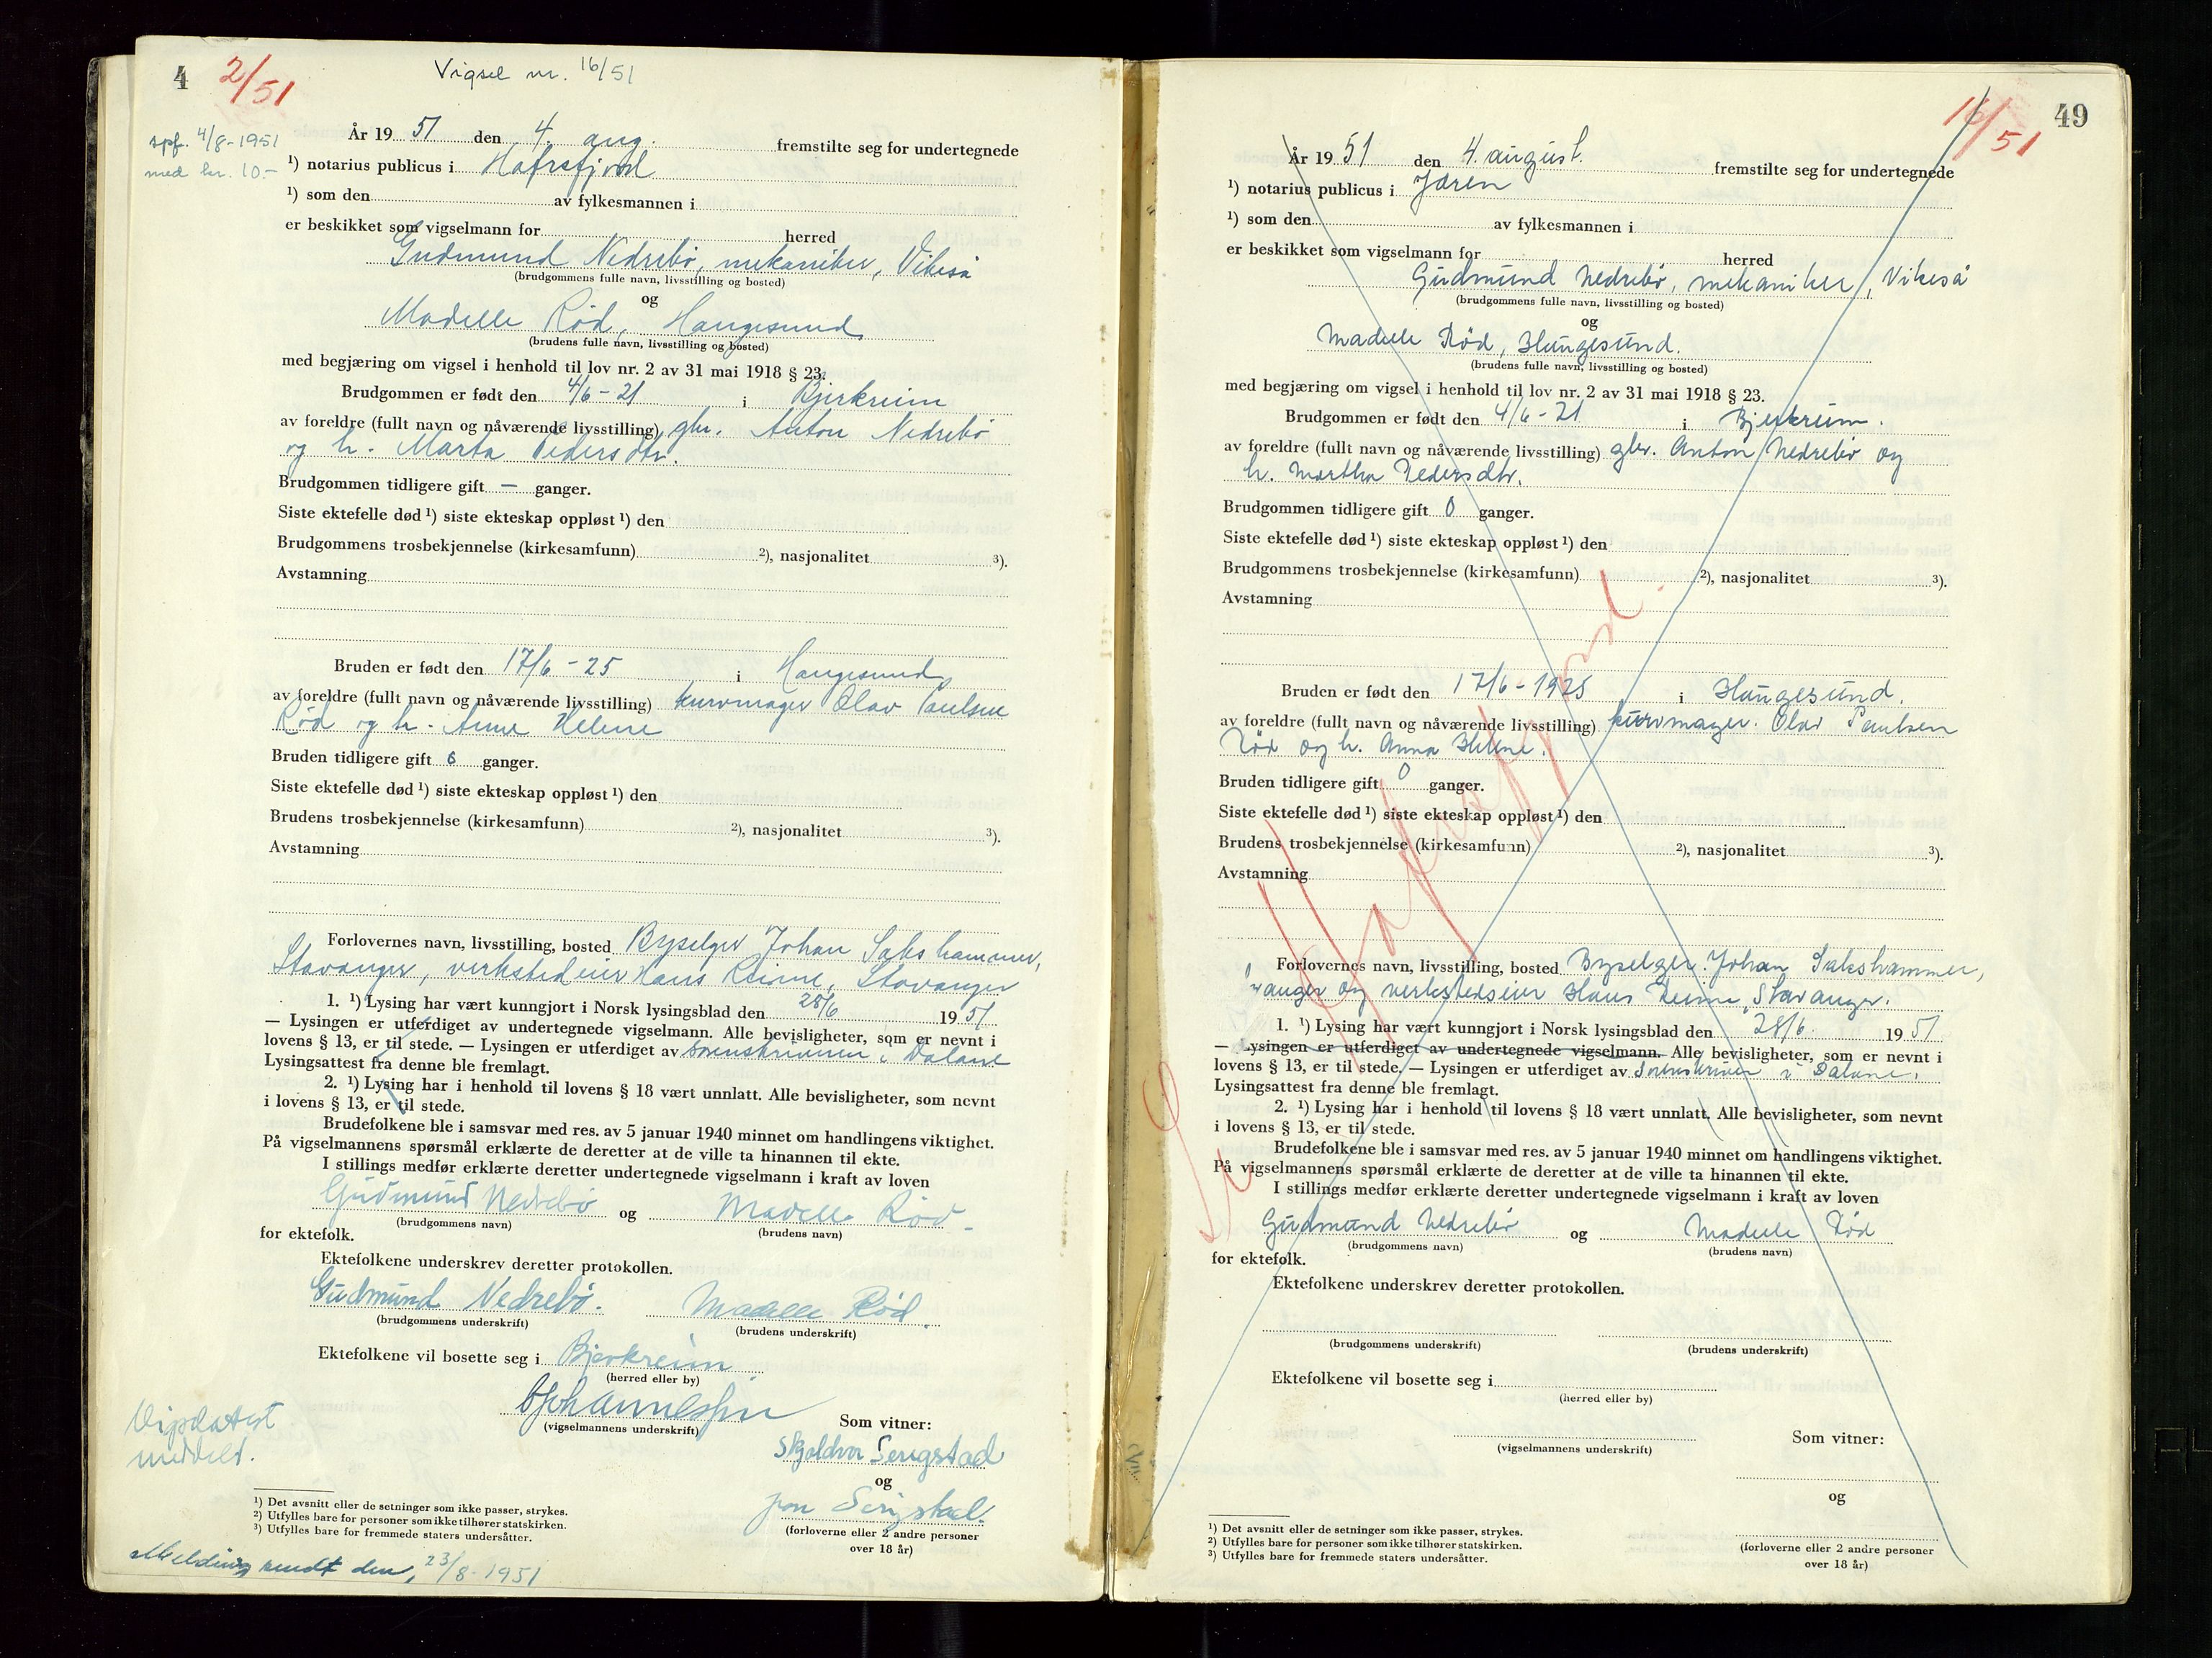 4 2/51 Vigsel nr. 16/51
spf. 4/8-1951
med kr. 10.-
År 1951 den 4. aug. fremstilte seg for undertegnede
¹) notarius publicus i Hafrsfjord
¹) som den av fylkesmannen i
er beskikket som vigselmann for herred
Gudmund Nedrebø, mekaniker, Vikeså
(brudgommens fulle navn, livsstilling og bosted)
og
Madelle Rød, Haugesund
(brudens fulle navn, livsstilling og bosted)
med begjæring om vigsel i henhold til lov nr. 2 av 31 mai 1918 § 23.
Brudgommen er født den 4/6-21 i Bjerkreim
av foreldre (fullt navn og nåværende livsstilling) gbr. Anton Nedrebø
og h. Marta Pedersdtr.
Brudgommen tidligere gift — ganger.
Siste ektefelle død ¹) siste ekteskap oppløst ¹) den
Brudgommens trosbekjennelse (kirkesamfunn) ²), nasjonalitet ³).
Avstamning
Bruden er født den 17/6-25 i Haugesund
av foreldre (fullt navn og nåværende livsstilling) kurvmager Olav Paulsen
Rød og h. Anne Helene
Bruden tidligere gift 0 ganger.
Siste ektefelle død ¹) siste ekteskap oppløst ¹) den
Brudens trosbekjennelse (kirkesamfunn) ²), nasjonalitet ³).
Avstamning
Forlovernes navn, livsstilling, bosted Byselger Johan Sakshammer,
Stavanger, verkstedeier Hans Reime, Stavanger
1. ¹) Lysing har vært kunngjort i Norsk lysingsblad den 28/6 1951
— Lysingen er utferdiget av undertegnede vigselmann. Alle bevisligheter, som er nevnt i
lovens § 13, er til stede. — Lysingen er utferdiget av sorenskriveren i Dalane
Lysingsattest fra denne ble fremlagt.
2. ¹) Lysing har i henhold til lovens § 18 vært unnlatt. Alle bevisligheter, som nevnt
i lovens § 13, er til stede.
Brudefolkene ble i samsvar med res. av 5 januar 1940 minnet om handlingens viktighet.
På vigselmannens spørsmål erklærte de deretter at de ville ta hinannen til ekte.
I stillings medfør erklærte deretter undertegnede vigselmann i kraft av loven
Gudmund Nedrebø og Madelle Rød
(brudgommens navn) (brudens navn)
for ektefolk.
Ektefolkene underskrev deretter protokollen.
Gudmund Nedrebø. Madelle Rød.
(brudgommens underskrift) (brudens underskrift)
Ektefolkene vil bosette seg i Bjerkreim
(herred eller by)
(vigselmannens underskrift) Som vitner:
Vigselattest
meddelt.
Skjoldvor Serigstad
og
Jon Serigstad.
(forloverne eller 2 andre personer
over 18 år)
¹) Det avsnitt eller de setninger som ikke passer, strykes.
²) Utfylles bare for personer som ikke tilhører statskirken.
³) Utfylles bare for fremmede staters undersåtter.
Melding sendt den, 23/8-1951
16/51 49
År 1951 den 4. august. fremstilte seg for undertegnede
¹) notarius publicus i Jæren
¹) som den av fylkesmannen i
er beskikket som vigselmann for herred
Gudmund Nedrebø, mekaniker, Vikeså
(brudgommens fulle navn, livsstilling og bosted)
og
Madelle Rød, Haugesund.
(brudens fulle navn, livsstilling og bosted)
med begjæring om vigsel i henhold til lov nr. 2 av 31 mai 1918 § 23.
Brudgommen er født den 4/6-21 i Bjerkreim.
av foreldre (fullt navn og nåværende livsstilling) gbr. Anton Nedrebø og
h. Martha Pedersdtr.
Brudgommen tidligere gift 0 ganger.
Siste ektefelle død ¹) siste ekteskap oppløst ¹) den
Brudgommens trosbekjennelse (kirkesamfunn) ²), nasjonalitet ³).
Avstamning
Bruden er født den 17/6-1925 i Haugesund.
av foreldre (fullt navn og nåværende livsstilling) kurvmager. Olav Paulsen
Rød og h. Anna Helene.
Bruden tidligere gift 0 ganger.
Siste ektefelle død ¹) siste ekteskap oppløst ¹) den
Brudens trosbekjennelse (kirkesamfunn) ²), nasjonalitet ³).
Avstamning
Se Hafrsfjord.
Forlovernes navn, livsstilling, bosted Byselger. Johan Sakshammer,
vanger og verkstedseier Hans Reime, Stavanger.
1. ¹) Lysing har vært kunngjort i Norsk lysingsblad den 28/6. 1951
— Lysingen er utferdiget av undertegnede vigselmann. Alle bevisligheter, som er nevnt i
lovens § 13, er til stede. — Lysingen er utferdiget av Sorenskriver i Dalane.
Lysingsattest fra denne ble fremlagt.
2. ¹) Lysing har i henhold til lovens § 18 vært unnlatt. Alle bevisligheter, som nevnt
i lovens § 13, er til stede.
Brudefolkene ble i samsvar med res. av 5 januar 1940 minnet om handlingens viktighet.
På vigselmannens spørsmål erklærte de deretter at de ville ta hinannen til ekte.
I stillings medfør erklærte deretter undertegnede vigselmann i kraft av loven
Gudmund Nedrebø og Madelle Rød
(brudgommens navn) (brudens navn)
for ektefolk.
Ektefolkene underskrev deretter protokollen.
(brudgommens underskrift) (brudens underskrift)
Ektefolkene vil bosette seg i
(herred eller by)
(vigselmannens underskrift) Som vitner:
og
(forloverne eller 2 andre personer
over 18 år)
¹) Det avsnitt eller de setninger som ikke passer, strykes.
²) Utfylles bare for personer som ikke tilhører statskirken.
³) Utfylles bare for fremmede staters undersåtter.